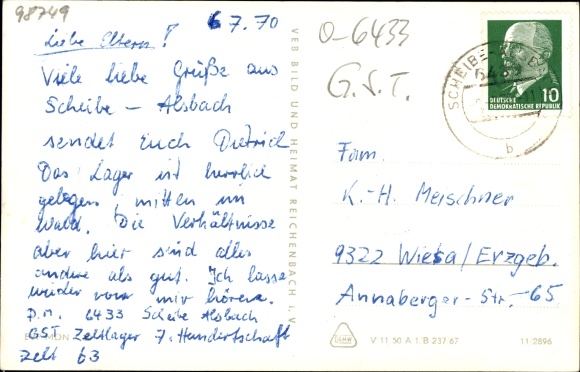 98749
6 7.70
Liebe Eltern!
Viele liebe Grüße aus
Scheibe – Alsbach
sendet Euch Dietrich
Das Lager ist herrlich
gelegen, mitten im
Wald. Die Verhältnisse
aber hier sind alles
andere als gut. Ich lasse
wieder von mir hören.
p.A. 6433 Scheibe Alsbach
GST Zeltlager 7. Hundertschaft
Zelt 63
VEB BILD UND HEIMAT REICHENBACH I. V.
O-6433
G.S.T.
SCHEIBE-
643
b
10
DEUTSCHE
DEMOKRATISCHE REPUBLIK
Fam.
K.-H. Meischner
9322 Wiesa/Erzgeb.
Annaberger-Str.-65
V 11 50 A 1/B 237 67
11 2896